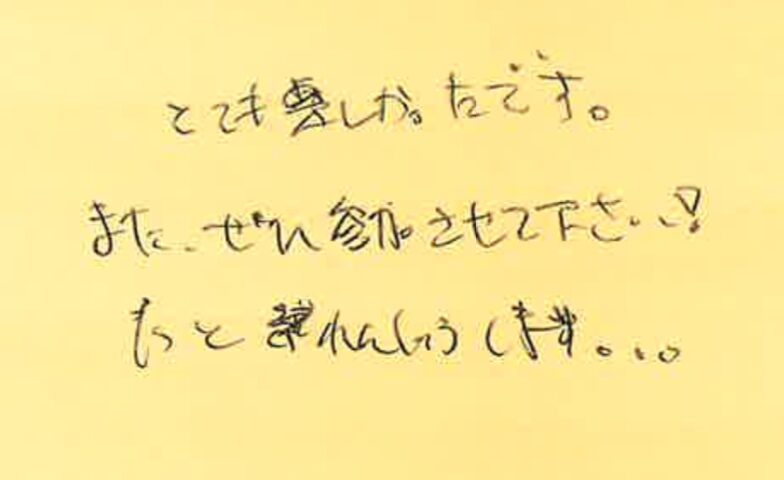 とても楽しかったです。
また、ぜひ参加させて下さい!
もっとれんしゅうします。..。